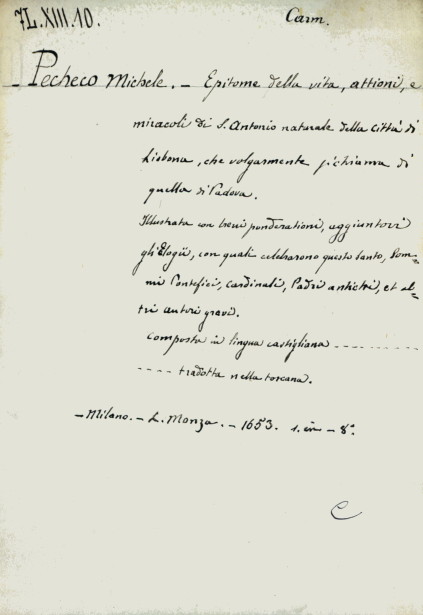 7L.XIII.10.
Carm.
Pecheco Michele. - Epitome della vita, attioni, e
miracoli di S. Antonio naturale della città di
Lisbona, che volgarmente si chiama di
quella di Padova.
Illustrata con brevi ponderationi, aggiuntovi
gli Elogii, con quali celebrarono questo Santo, Som-
mi Pontefici, Cardinali, Padri antichi, et al-
tri autori gravi.
Composta in lingua castigliana ----------
---- tradotta nella toscana.
- Milano. - L. Monza. - 1653. 1. in - 8°.
C